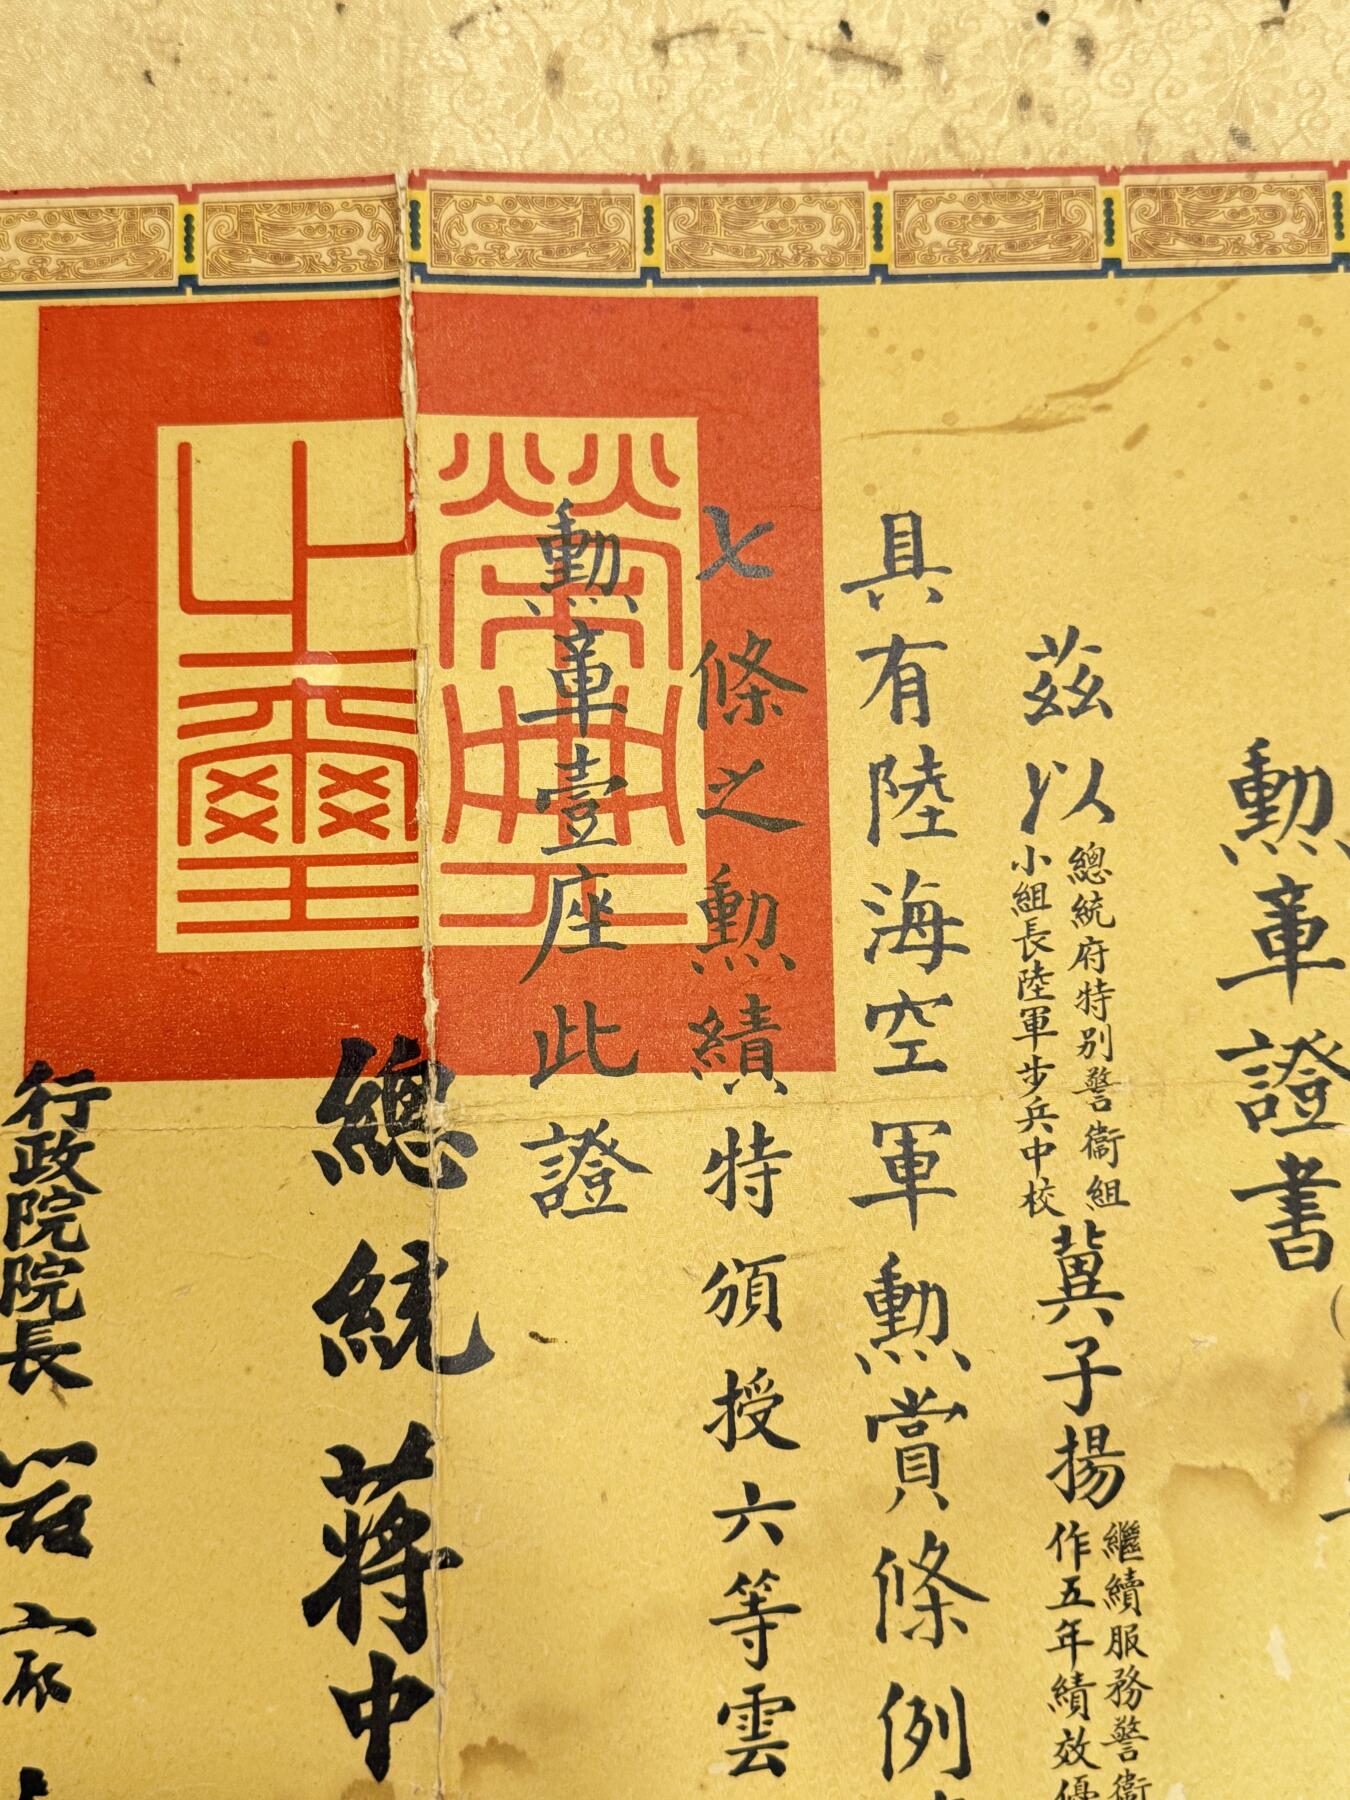 勳章證書
茲以總統府特別警衞組
小組長陸軍步兵中校
冀子揚繼續服務警衞
作五年績效優
具有陸海空軍勳賞條例
七條之勳績特頒授六等雲
勳章壹座此證
榮典
之璽
總統蔣中
行政院院長